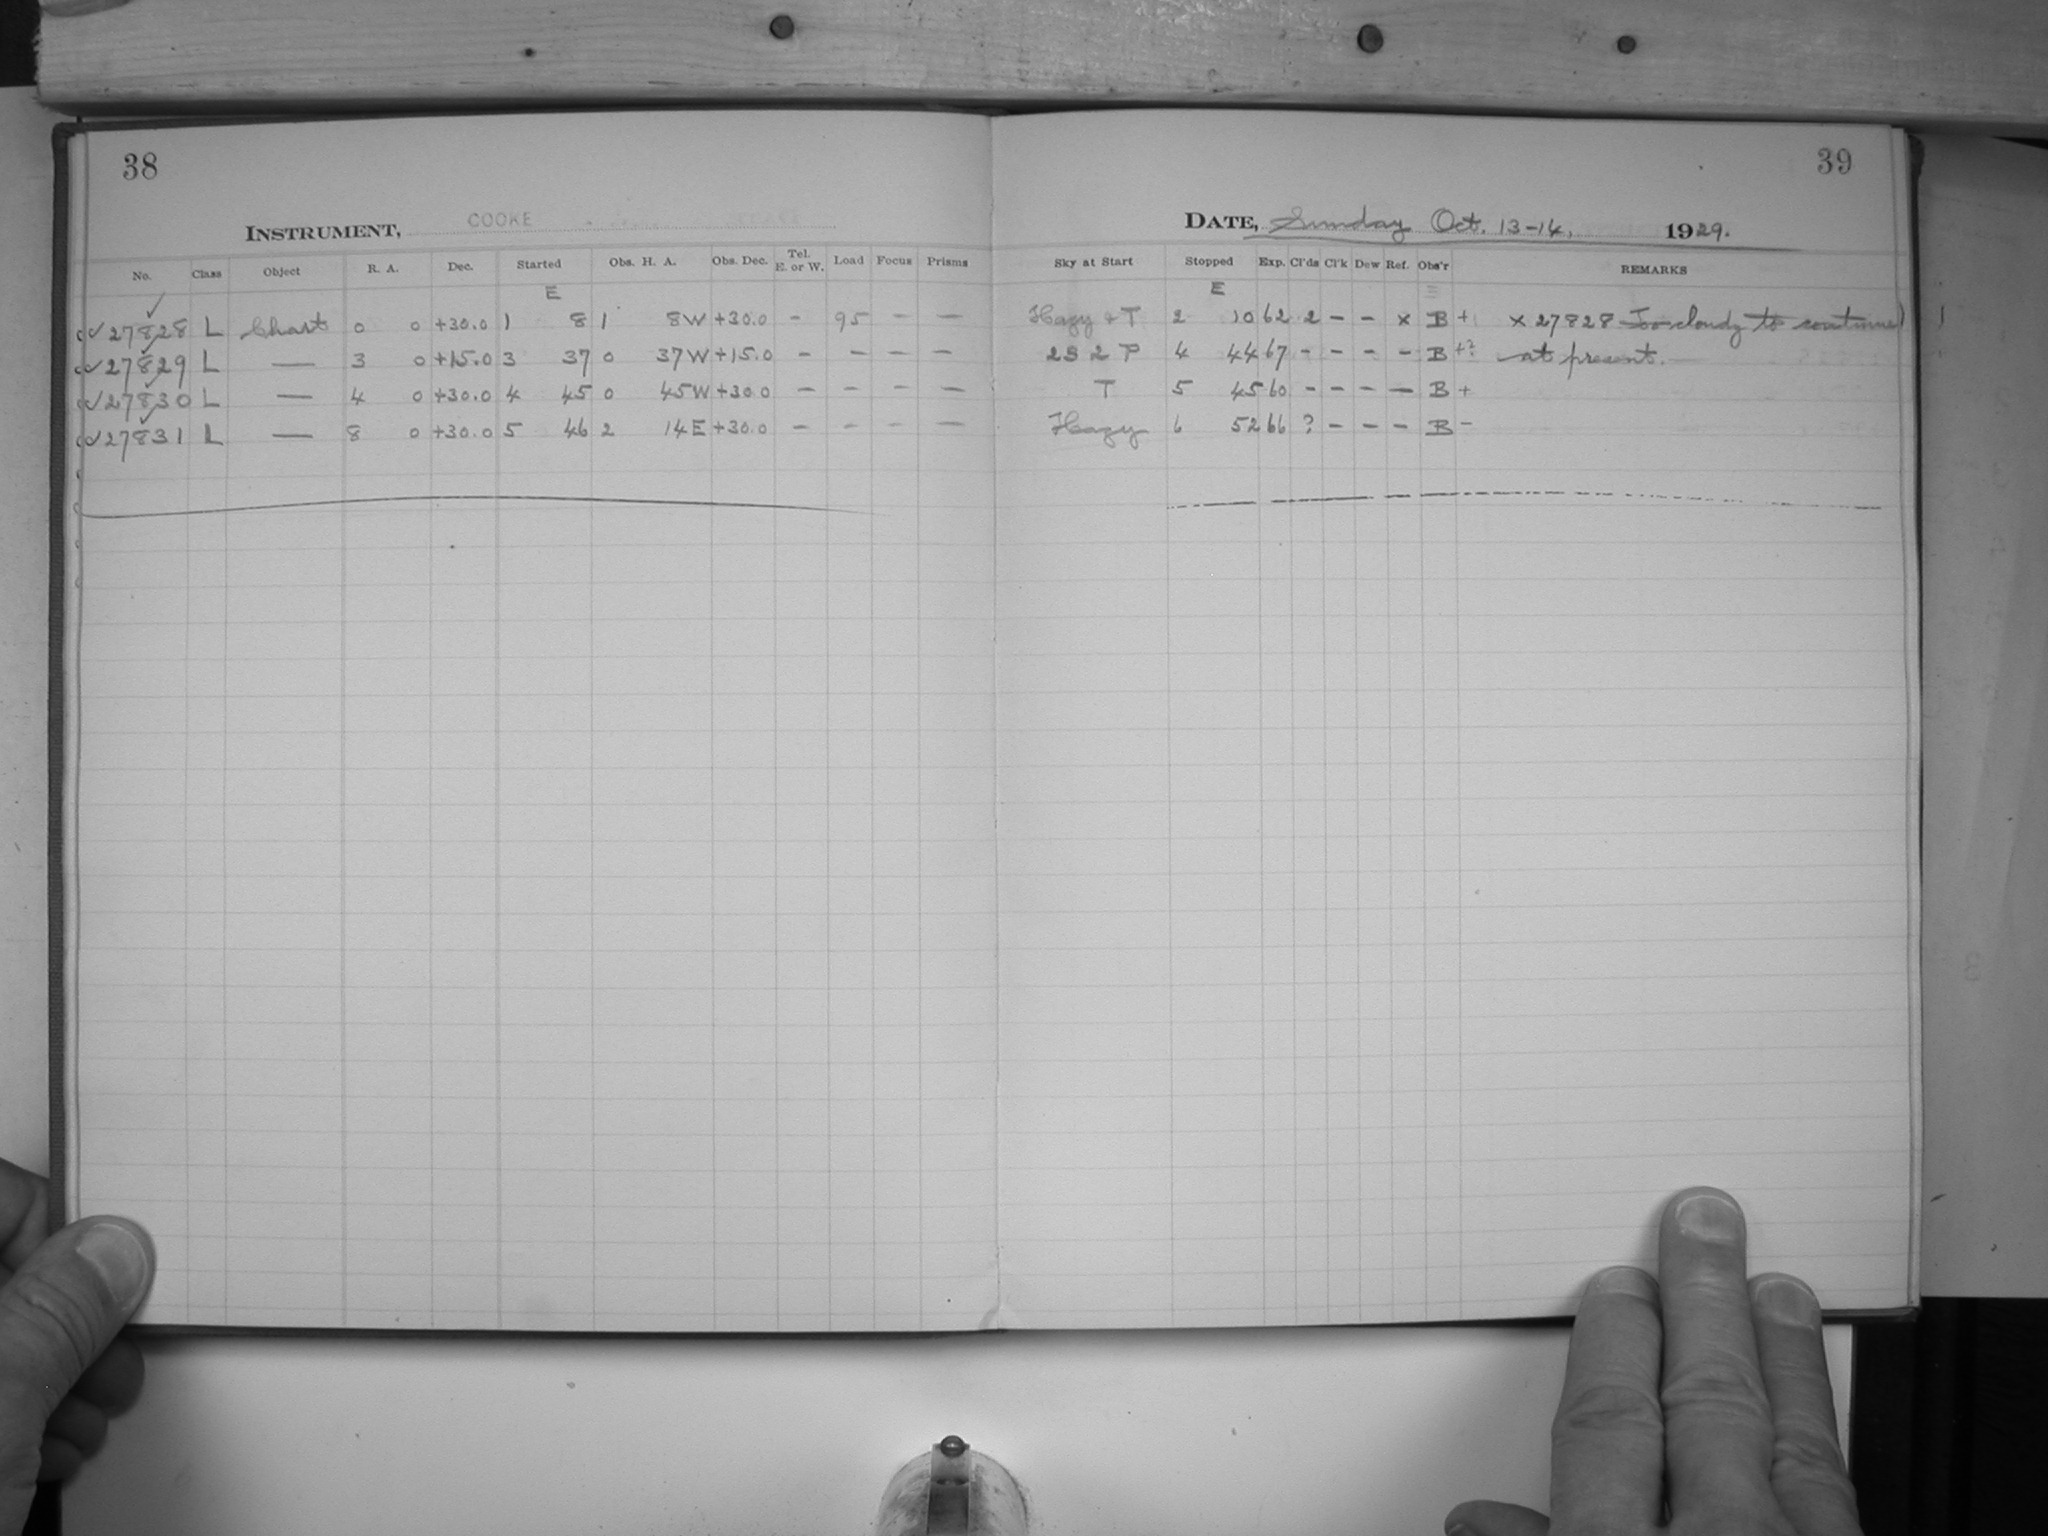 38
39
INSTRUMENT, COOKE
DATE, Sunday Oct. 13-14, 1929.
No. Class Object R. A. Dec. Started Obs. H. A. Obs. Dec. Tel. E. or W. Load Focus Prisms Sky at Start Stopped Exp. Cl'ds Cl'k Dew Ref. Obs'r REMARKS
E E
✓27828 L Chart 0 0 +30.0 1 8 1 8W +30.0 - 95 - - Hazy + T 2 10 62 2 - - x B + x 27828 Too cloudy to continue
✓27829 L — 3 0 +15.0 3 37 0 37W +15.0 - - - - 2S 2 P 4 44 67 - - - - B +? at present.
✓27830 L — 4 0 +30.0 4 45 0 45W +30.0 - - - - T 5 45 60 - - - - B +
✓27831 L — 8 0 +30.0 5 46 2 14E +30.0 - - - - Hazy 6 52 66 ? - - - B -